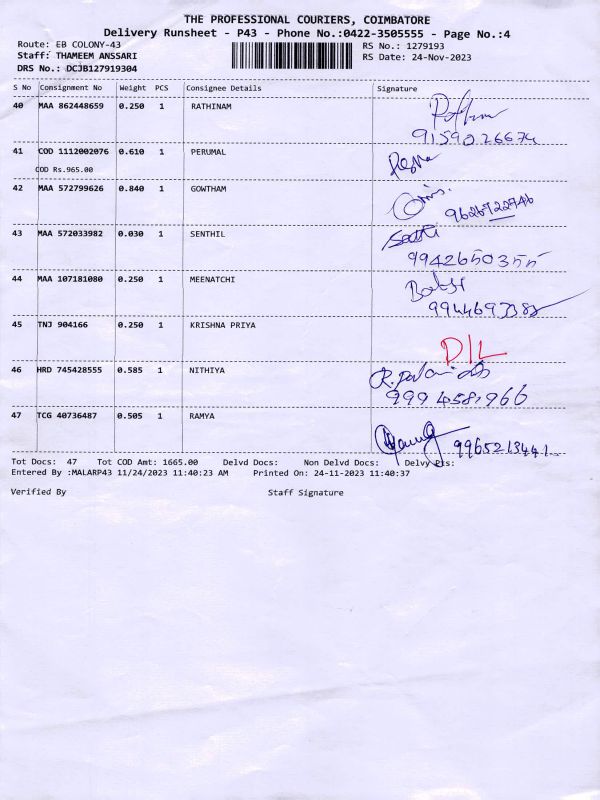 THE PROFESSIONAL COURIERS, COIMBATORE
Delivery Runsheet - P43 - Phone No.:0422-3505555 - Page No.:4
Route: EB COLONY-43 RS No.: 1279193
Staff: THAMEEM ANSSARI RS Date: 24-Nov-2023
DRS No.: DCJB127919304
S No Consignment No Weight PCS Consignee Details Signature
40 MAA 862448659 0.250 1 RATHINAM
9159026674
41 COD 1112002076 0.610 1 PERUMAL
COD Rs.965.00
42 MAA 572799626 0.840 1 GOWTHAM
9626722746
43 MAA 572033982 0.030 1 SENTHIL
9942650355
44 MAA 107181080 0.250 1 MEENATCHI
45 TNJ 904166 0.250 1 KRISHNA PRIYA
D/L
46 HRD 745428555 0.585 1 NITHIYA
47 TCG 40736487 0.505 1 RAMYA
9965213441
Tot Docs: 47 Tot COD Amt: 1665.00 Delvd Docs: Non Delvd Docs: Delvy Pts:
Entered By :MALARP43 11/24/2023 11:40:23 AM Printed On: 24-11-2023 11:40:37
Verified By Staff Signature